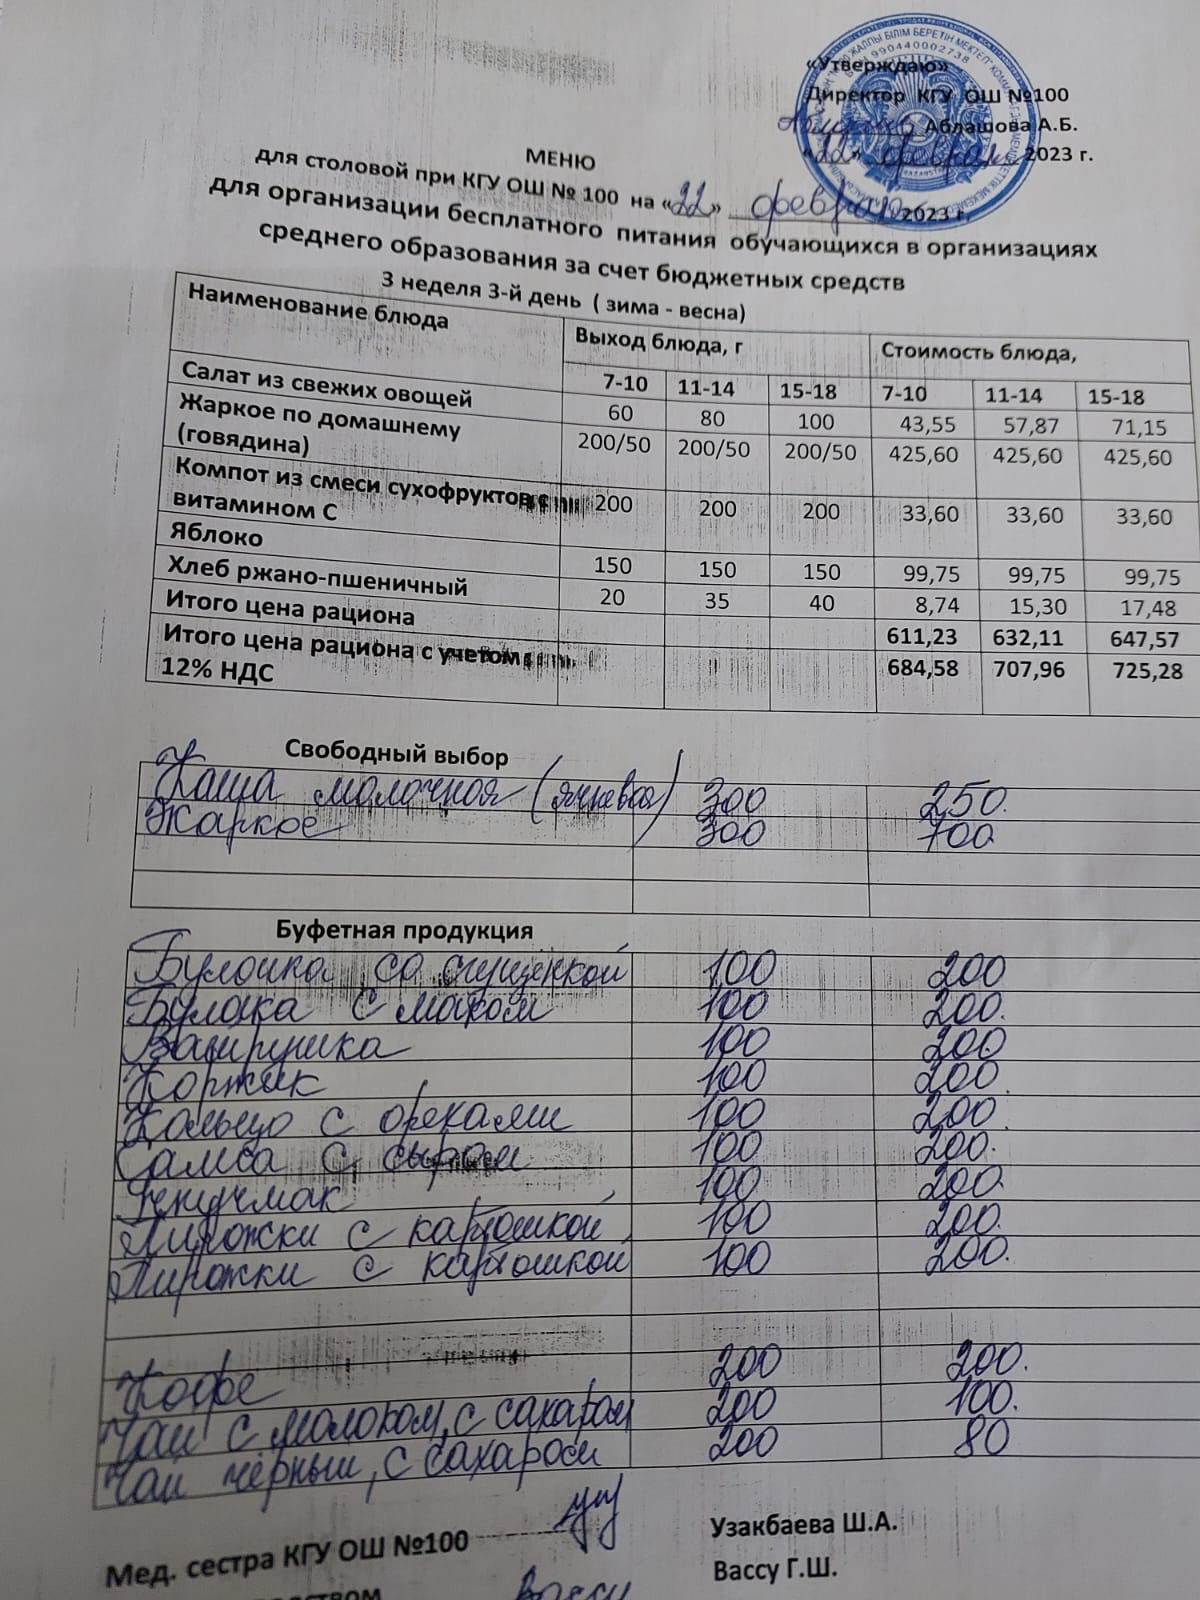 «Утверждаю»
Директор КГУ ОШ №100
Аблашова А.Б.
«22» февраля 2023 г.
МЕНЮ
для столовой при КГУ ОШ № 100 на «22» февраля 2023 г.
для организации бесплатного питания обучающихся в организациях
среднего образования за счет бюджетных средств
3 неделя 3-й день ( зима - весна)
Наименование блюда Выход блюда, г Стоимость блюда,
7-10 11-14 15-18 7-10 11-14 15-18
Салат из свежих овощей 60 80 100 43,55 57,87 71,15
Жаркое по домашнему
(говядина) 200/50 200/50 200/50 425,60 425,60 425,60
Компот из смеси сухофруктов с
витамином С 200 200 200 33,60 33,60 33,60
Яблоко 150 150 150 99,75 99,75 99,75
Хлеб ржано-пшеничный 20 35 40 8,74 15,30 17,48
Итого цена рациона 611,23 632,11 647,57
Итого цена рациона с учетом
12% НДС 684,58 707,96 725,28
Свободный выбор
Каша молочная (ячневая) 300 250.
Жаркое 300 700
Буфетная продукция
Булочка со сгущенкой 100 200
Булочка с маком 100 200.
Ватрушка 100 200
Коржик 100 200.
Кольцо с орехами 100 200.
Самса с сыром 100 200.
100 200
Пирожки с картошкой 100 200.
Пирожки с картошкой 100 200.
Кофе 200 200.
Чай с молоком, с сахаром 200 100.
Чай чёрный, с сахаром 200 80
Мед. сестра КГУ ОШ №100 Узакбаева Ш.А.
Вассу Г.Ш.
Вассу